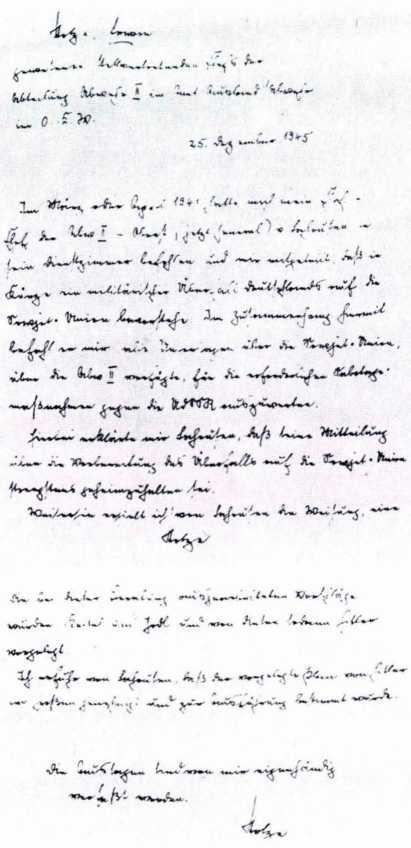 Stolze Erwin
gewesener Stellvertretender Chefs der
Abteilung Abwehr II im Amt Ausland Abwehr
im O.K.W.
25. Dezember 1945
Im März oder April 1941 hatte mich mein Chef -
Chef der Abw II - Oberst (jetzt General) v Lahousen in
sein Dienstzimmer befohlen und mir mitgeteilt, daß in
Kürze ein militärischer Überfall Deutschlands auf die
Sowjet-Union bevorstehe. Im Zusammenhang hiermit
befahl er mir, alle über die Sowjet-Union,
über die Abw II verfügte, für die erforderlichen Sabotage-
maßnahmen gegen die UdSSR auszuwerten.
Hierbei erklärte mir Lahousen, daß seine Mitteilung
über die Vorbereitung des Überfalls auf die Sowjet-Union
strengstens geheimzuhalten sei.
Weiterhin erhielt ich von Lahousen die Weisung, eine
Stolze
Die in dieser Beratung ausgearbeiteten Vorschläge
wurden Keitel und Jodl und von diesen sodann Hitler
vorgelegt
Ich erfuhr von Lahousen, daß der vorgelegte Plan von Hitler
und zur Ausführung bestimmt wurde.
Die Aussagen sind von mir eigenhändig
verfaßt worden.
Stolze